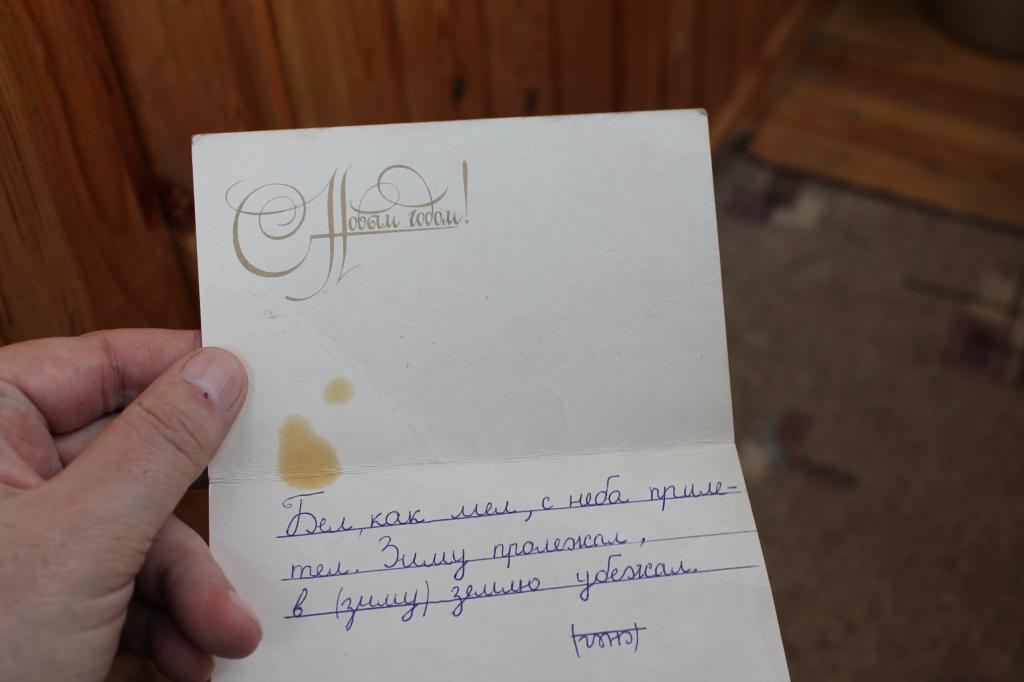 С Новым годом!
Бел, как мел, с неба приле-
тел. Зиму пролежал,
в (зиму) землю убежал.